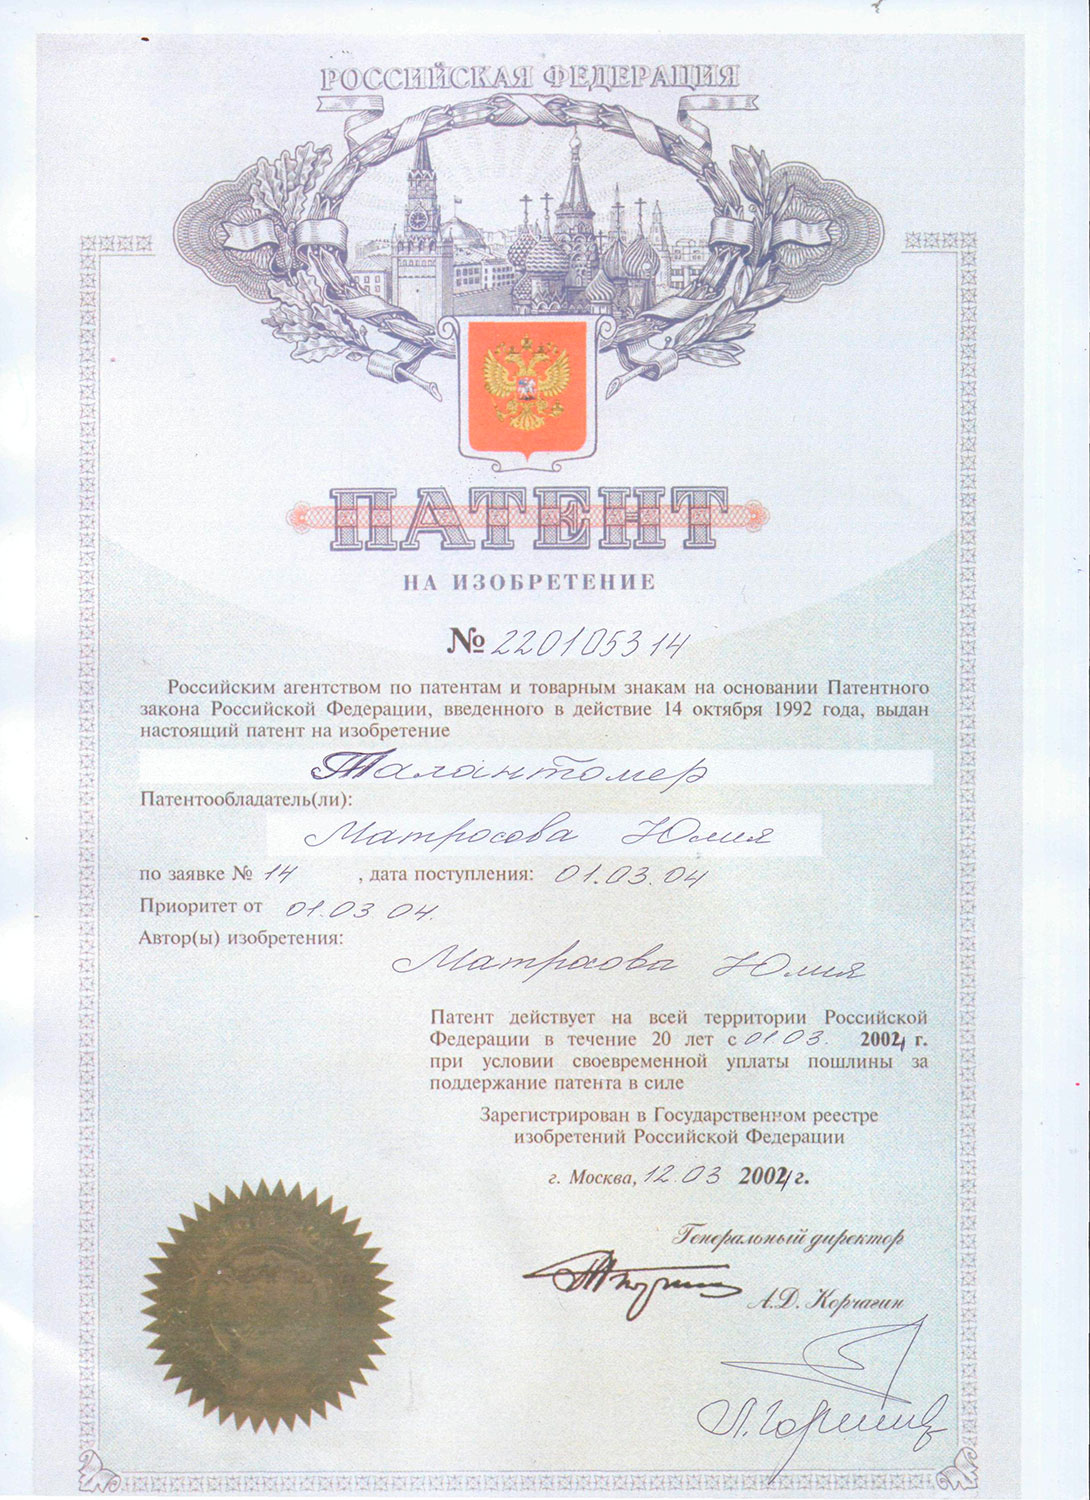 РОССИЙСКАЯ ФЕДЕРАЦИЯ
ПАТЕНТ
НА ИЗОБРЕТЕНИЕ
№ 220105314
Российским агентством по патентам и товарным знакам на основании Патентного
закона Российской Федерации, введенного в действие 14 октября 1992 года, выдан
настоящий патент на изобретение
Талантомер
Патентообладатель(ли):
Матросова Юлия
по заявке № 14 , дата поступления: 01.03.04
Приоритет от 01.03 04.
Автор(ы) изобретения:
Матросова Юлия
Патент действует на всей территории Российской
Федерации в течение 20 лет с 01.03. 2004 г.
при условии своевременной уплаты пошлины за
поддержание патента в силе
Зарегистрирован в Государственном реестре
изобретений Российской Федерации
г. Москва, 12.03 2004 г.
Генеральный директор
А.Д. Корчагин